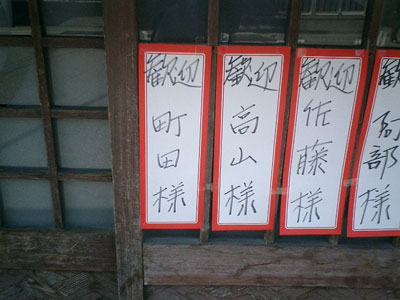 歓迎 町田様
歓迎 高山様
歓迎 佐藤様
歓迎 阿部様